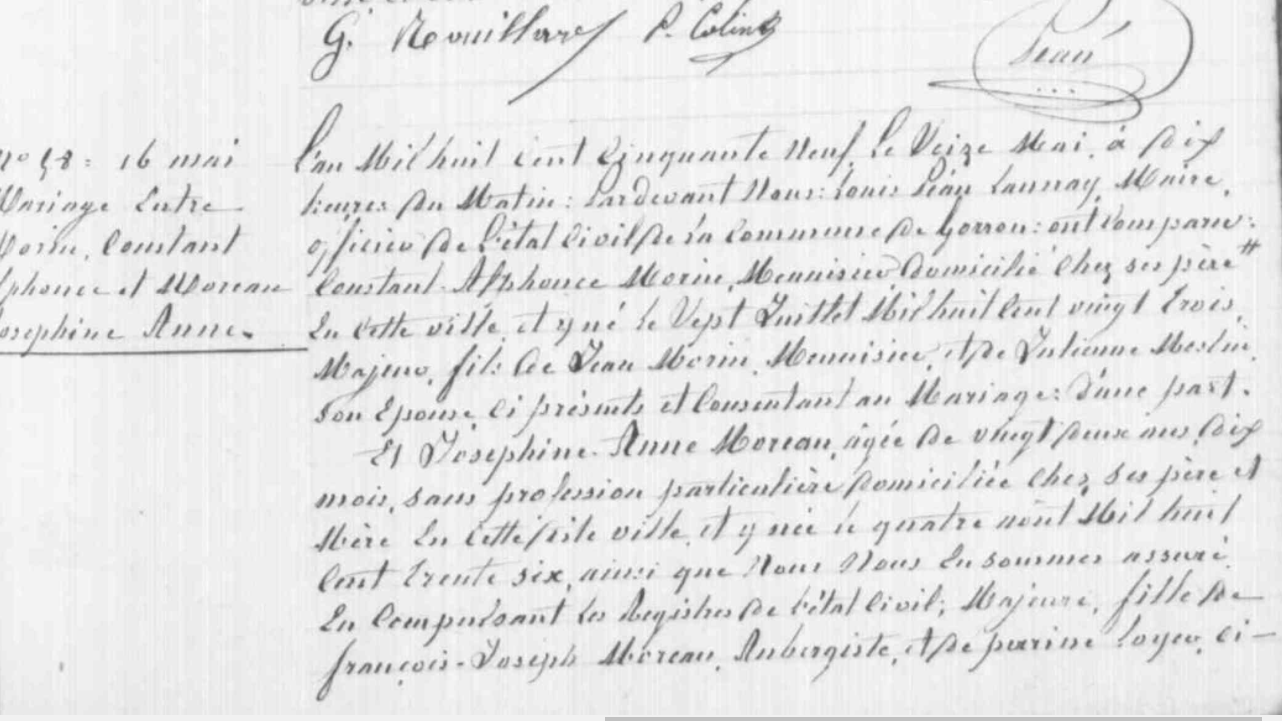 G. Rouillard P. Colin
Péan
L'an Mil huit cent Cinquante Neuf, Le Seize Mai, à Dix
No 58 = 16 mai
heures du Matin: Pardevant Nous: Louis Péan Launay, Maire,
Mariage Entre
officier de l'état Civil de la Commune de Gorron: ont Comparu:
Morin, Constant
Constant Alphonce Morin, Menuisier, Domicilié chez ses père #
Alphonce et Moreau
En cette ville, et y né le Sept Juillet Mil huit Cent vingt Trois,
Josephine Anne.
Majeur, fils de Jean Morin, Menuisier, et de Julienne Meslin
son Epouse, ci présents et Consentant au Mariage: d'une part.
Et Josephine Anne Moreau, âgée de vingt deux ans, Dix
mois, sans profession particulière domiciliée chez ses père et
Mère En cette dite ville, et y née le quatre aout Mil huit
Cent Trente six, ainsi que Nous Nous En sommes assuré
En Compulsant les Registres de l'état Civil; Majeure, fille de
françois-Joseph Moreau, Aubergiste, et de perrine Loyer, ci-